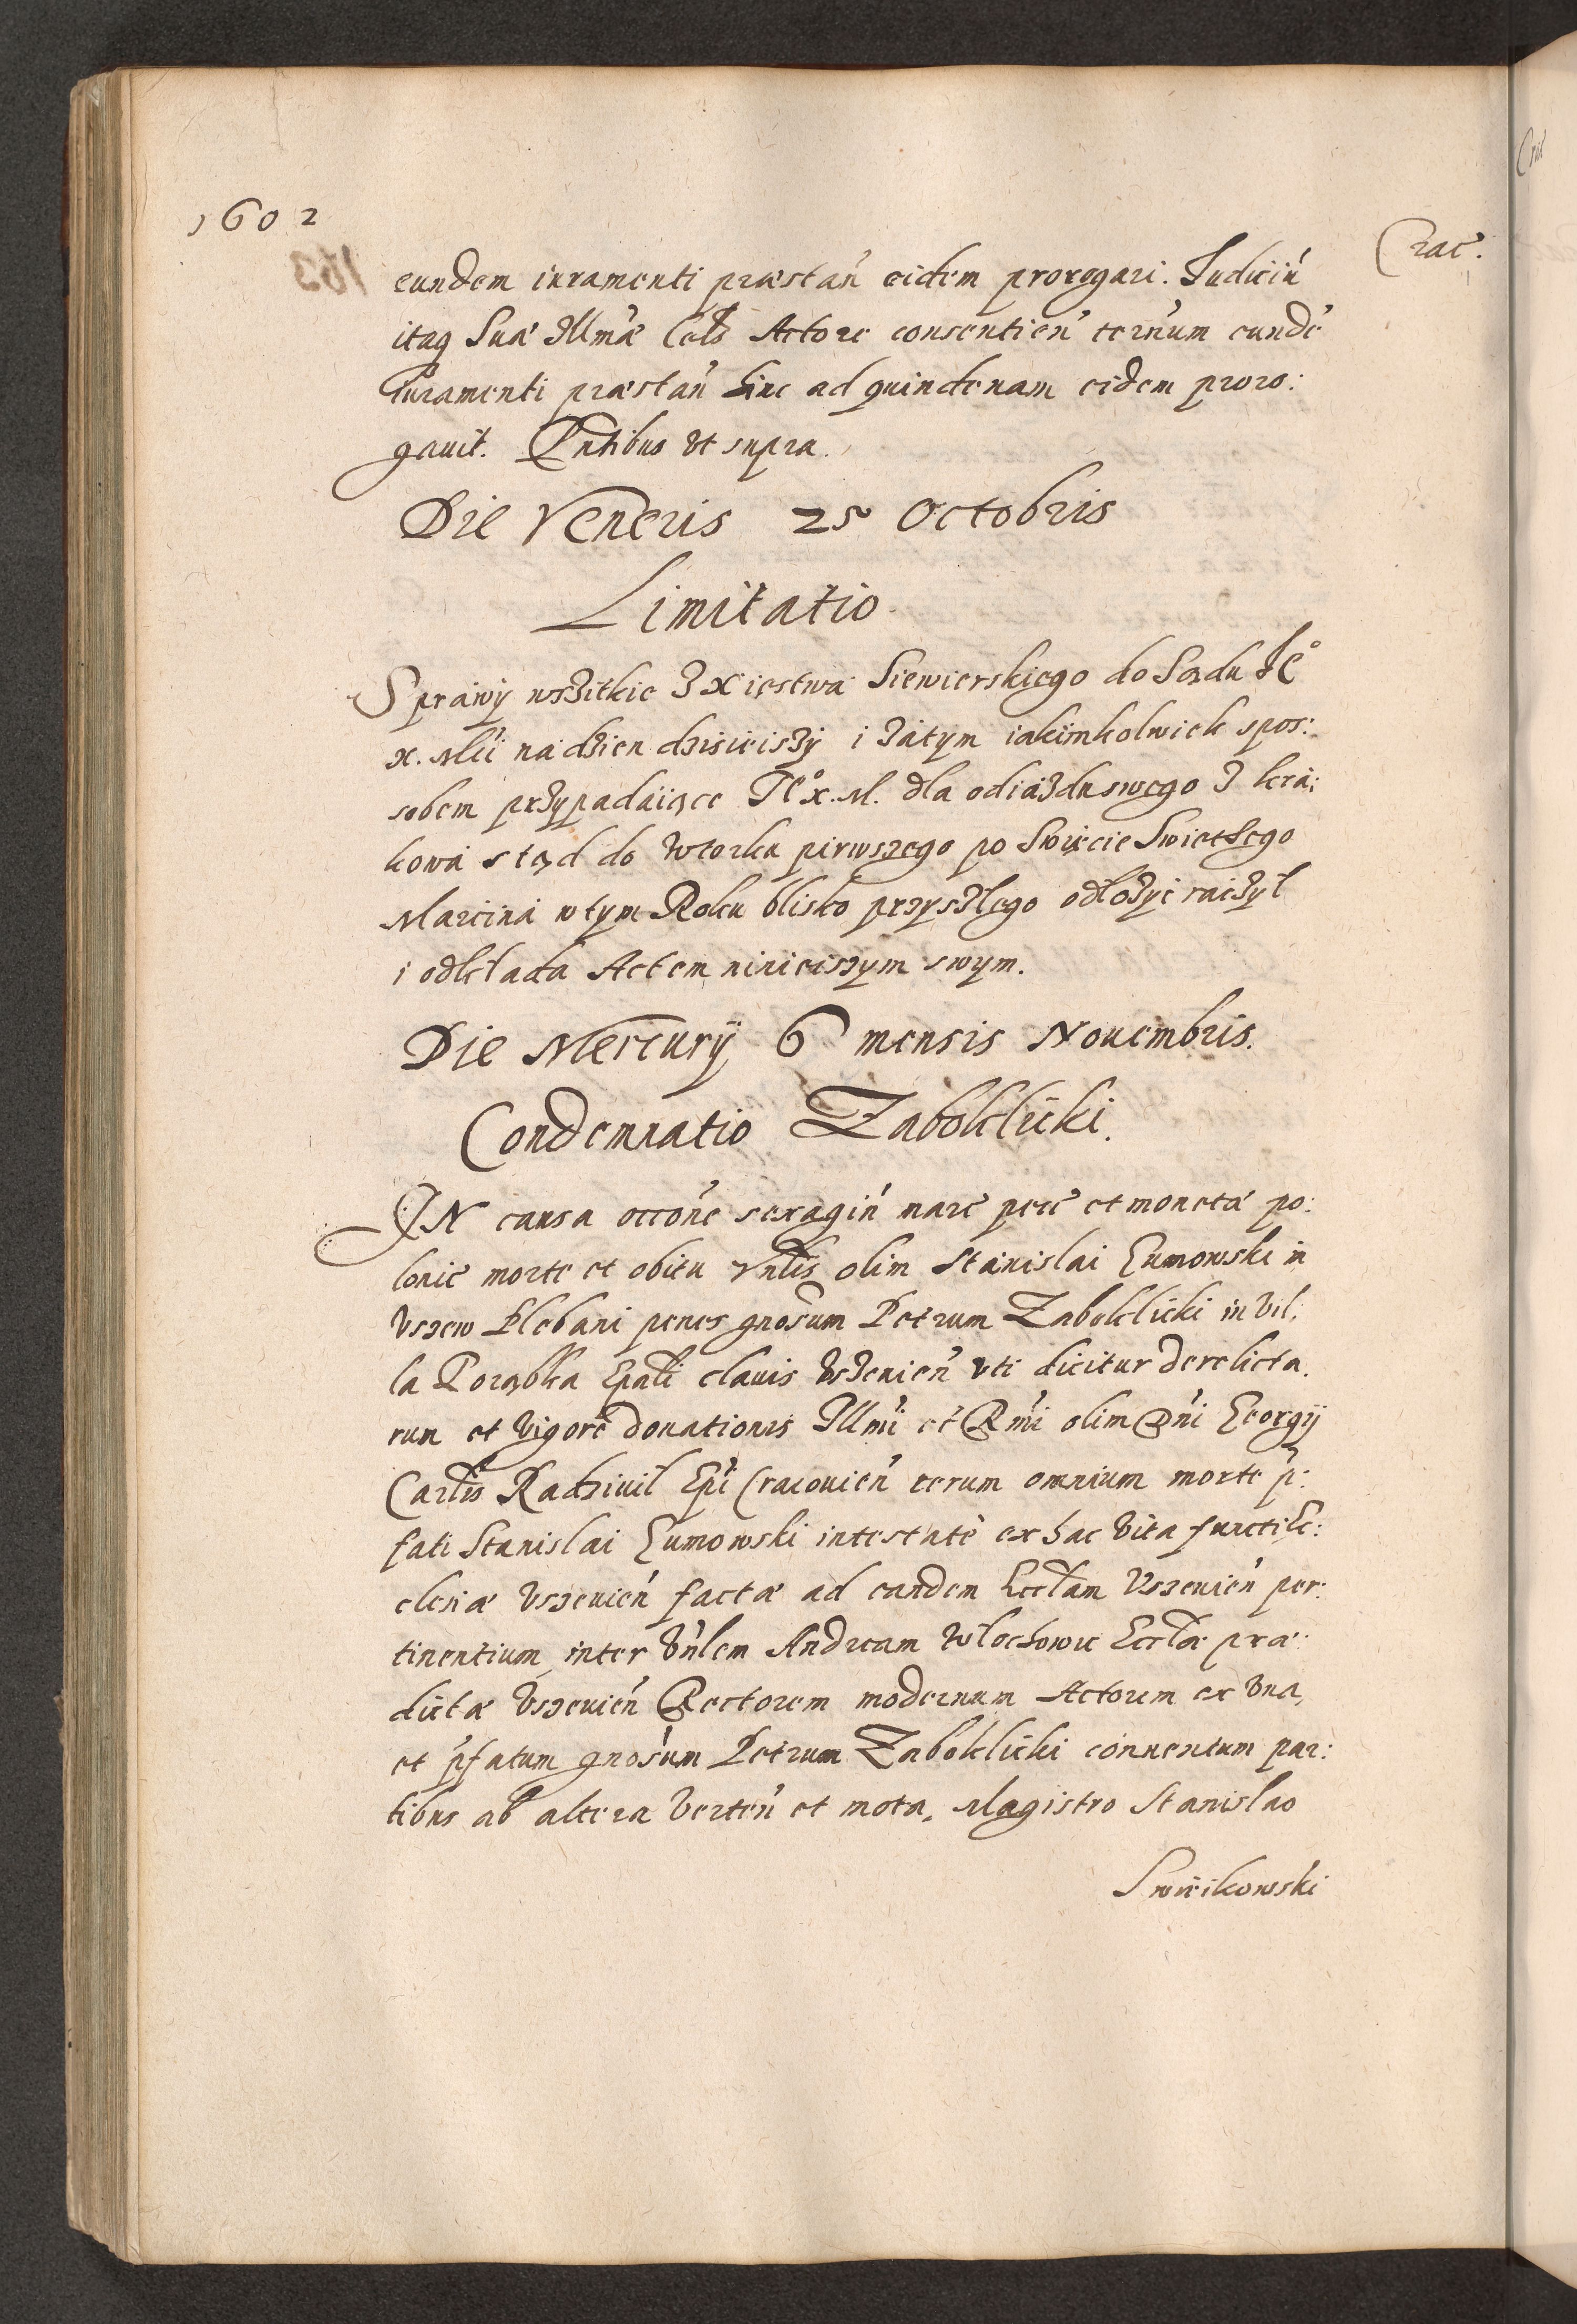 1602
Crac̃.
eundem iuramenti præstań eidem prorogari. Iudiciú
itaq Suæ Illmæ Cels Actore consentień termum eundé
iuramenti præstań hinc ad quindenam eidem proro:
gauit. Pntibus vt supra.
Die Veneris 25 Octobris
Limitatio.
Sprawy wszitkie z Xięstwa Siewierskiego do Sądu Je°
x. Mći na dzien dzisieiszy i zatym iakimkolwiek spos:
sobem przypadaiące Je° x. M. dla odiazdu swego z kra:
kowa stąd do Wtorku pirwszego po Swięcie Swiethego
Marcina w tym Roku blisko przyszłego odłozyć raczył
i odkłada Actem ninieiszym swym.
Die Mercurij 6 mensis Nouembris.
Condemnatio Zaboklicki.
IN causa occońe sexagiń marc pecć et monetæ po:
lonić morte et obitu Vnlis olim Stanislai Gumowski in
Vszew Plebani penes gnosum Petrum Zaboklicki in vil:
la Porąbka Epali clauis Vszewień vti dicitur derelicta.
rum et vigore donationis Illmi et Rmi olim Dni Georgij
Cardlis Radziuil Epi Cracouień rerum omnium morte p:
fati Stanislai Gumowski intestate ex hac vita functi Ec:
clesiæ Vszeuień factæ ad eandem Ecclam Vszeuień per:
tinentium, inter Vnlem Andream Włochowic Ecclæ præ:
dictæ Vszeuień Rectorem modernum Actorem ex vna,
et pfatum gnosum Petrum Zaboklicki conuentum par:
tibus ab altera verteń et mota, Magistro Stanislao
Swiecikowski